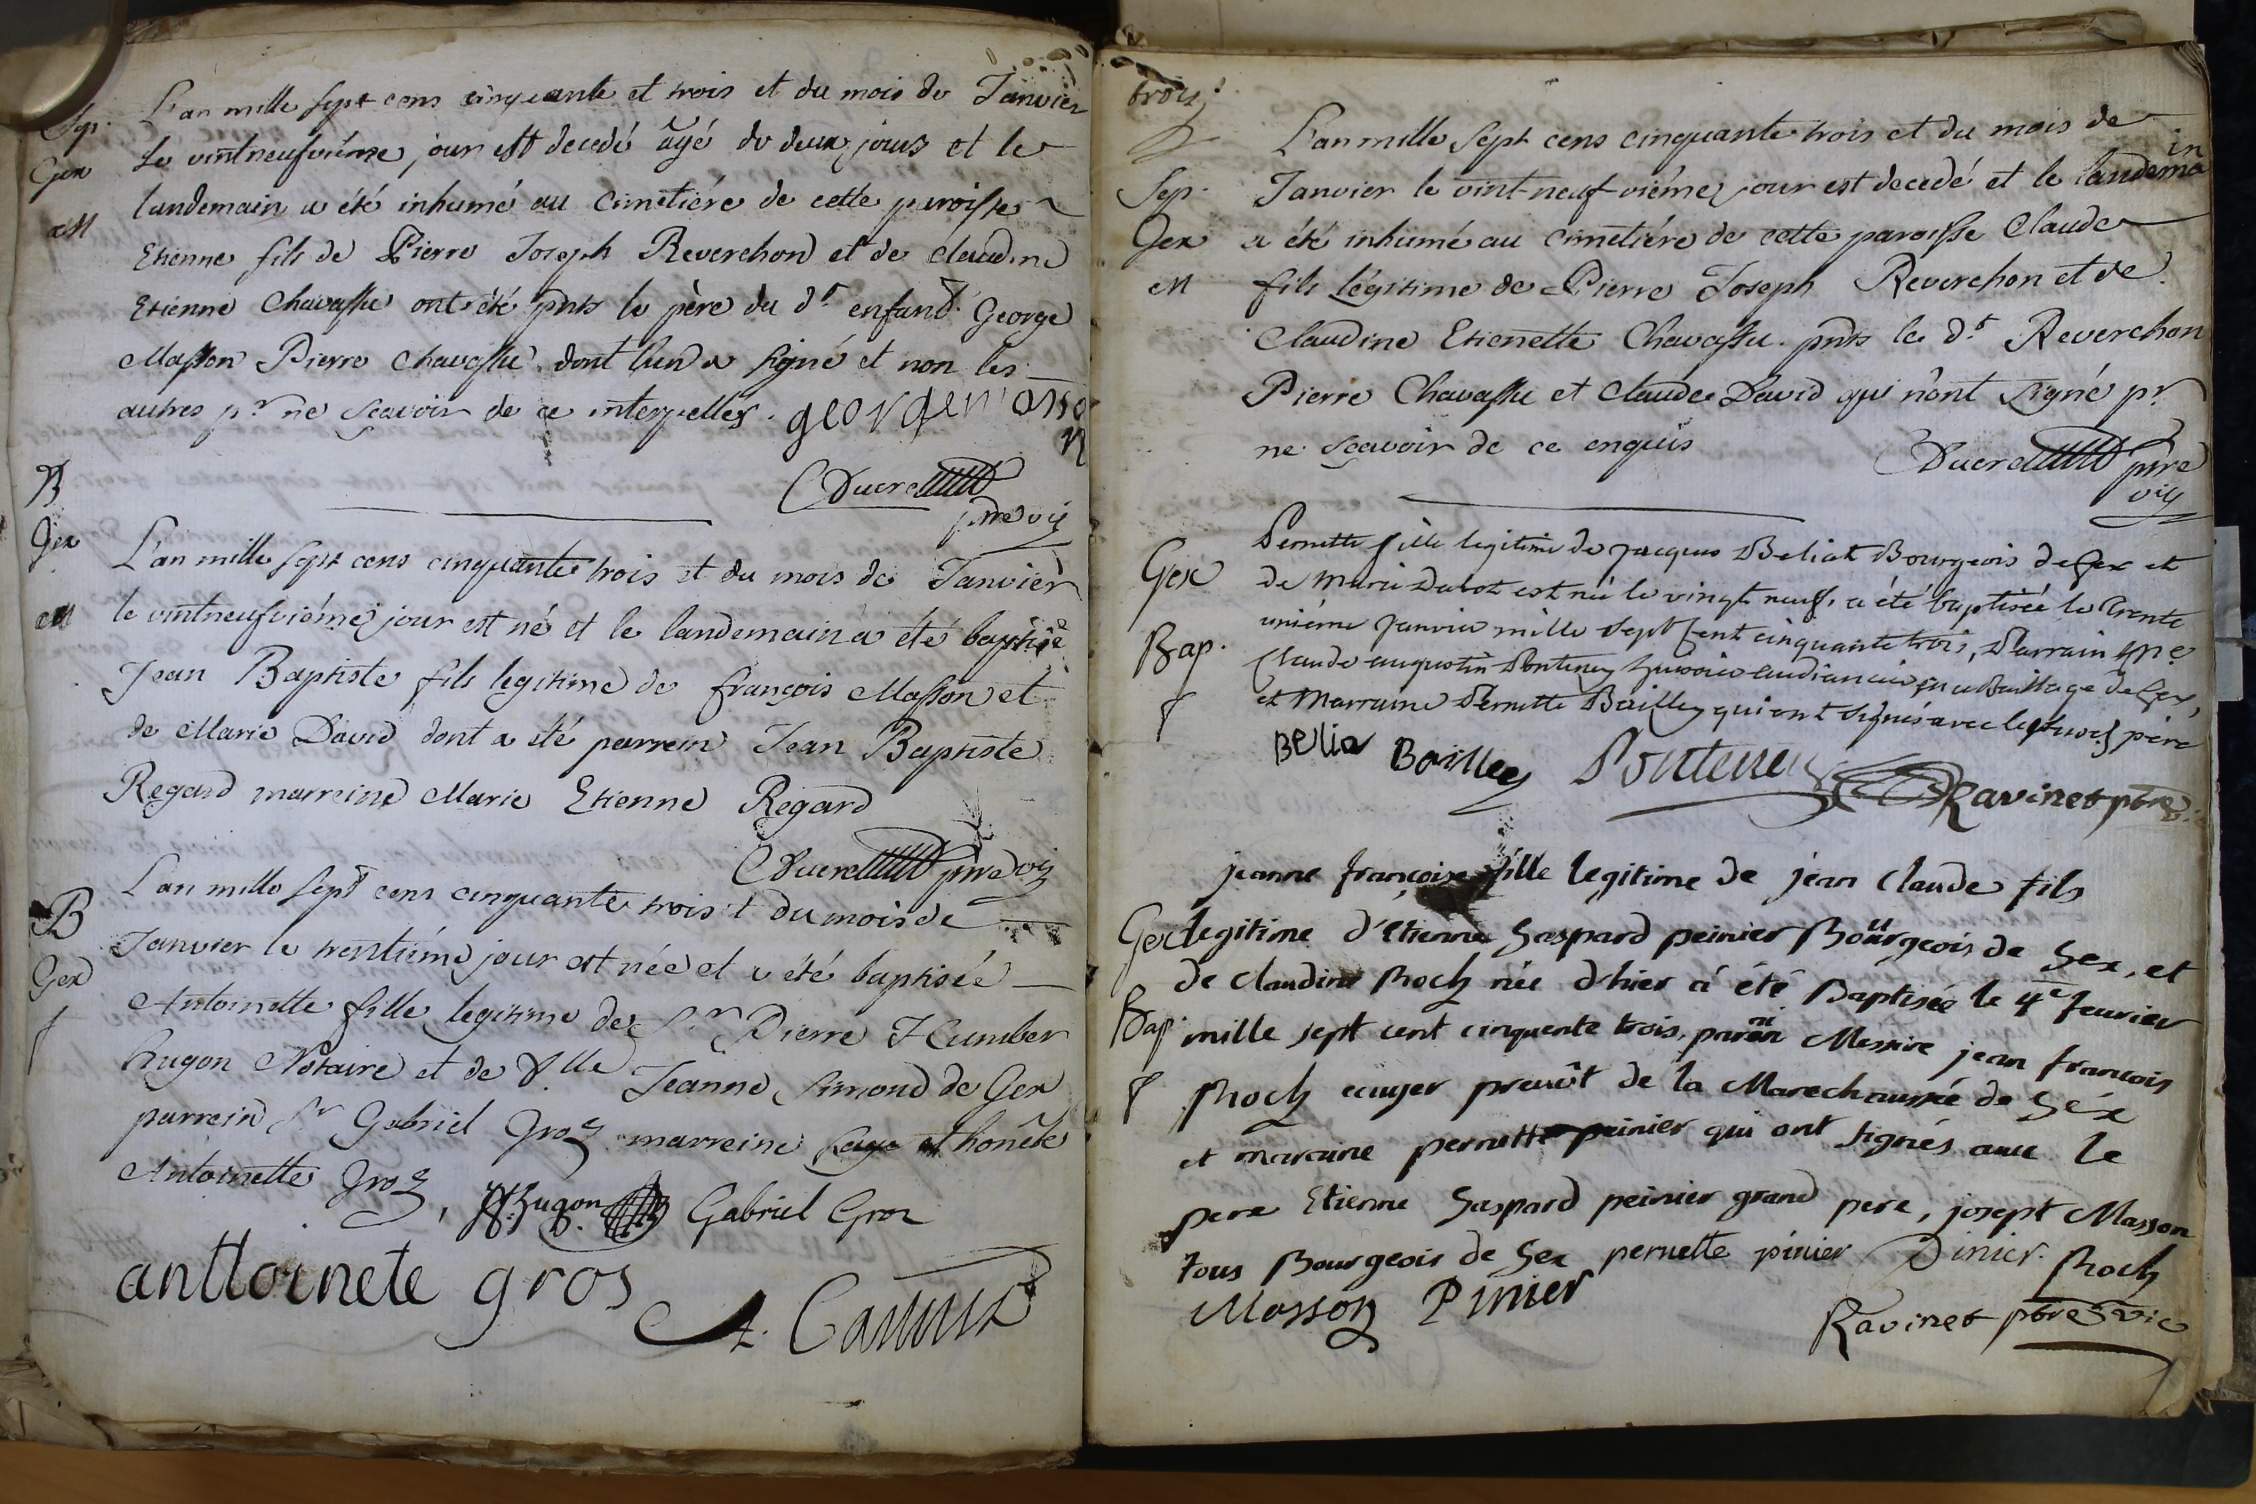 Sep.
Gex
M
L'an mille sept cens cinquante et trois et du mois de Janvier
le vintneufvième jour est decedé âgé de deux jours et le
landemain a été inhumé au cimetiére de cette paroisse
Etienne fils de Pierre Joseph Reverchon et de claudine
Etienne Chavassu ont été pnts le père du dt enfand George
Masson Pierre Chavassu dont l'un a signé et non les
autres pr ne scavoir de ce interpelles. george masso
n
Ducret
pnre vic
B
Gex
M
L'an mille sept cens cinquante trois et du mois de Janvier
le vintneufviéme jour est né et le landemain a été baptisé
Jean Baptiste fils legitime de françois Masson et
de Marie David dont a été parrein Jean Baptiste
Regard marreine Marie Etienne Regard
Ducret pnre vic
B
Gex
f
L'an mille sept cens cinquante trois et du mois de
Janvier le trentiéme jour est née et a été baptisée
Antoinette fille legitime de Sr Pierre Humber
hugon Notaire et de Dlle Jeanne Simond de Gex
parrein Sr Gabriel Groz marreine sage et honête
Antoinette Groz, Hugon Gabriel Groz
anttoinete gros
trois
Sep.
Gex
M
L'an mille sept cens cinquante trois et du mois de
Janvier le vint-neuf-viéme jour est decedé et le landema in
a été inhumé au cimetiére de cette paroisse Claude
fils Légitime de Pierre Joseph Reverchon et de
Claudine Etienette Chavassu pnts le dt Reverchon
Pierre Chavassu et Claude David qui n'ont signé pr
ne scavoir de ce enquis
Ducret pnre
vic
Gex
Bap.
f
Pernette fille legitime de jacques Beliat Bourgeois de Gex et
de Marie Dubot est née le vingt neuf, a été baptisée le trente
uniéme janvier mille sept cent cinquante trois, Parrain
Claude augustin Pontenay huissier audiancier au Bailliage de Gex,
et Marraine Pernette Bailley qui ont signés avec le père
Belia Bailley Pontenay
Ravinet pbre
Gex
Bap.
f
jeanne françoise fille legitime de jean Claude fils
legitime d'etienne Gaspard peinier Bourgeois de Gex, et
de claudine Roch née d'hier à été Baptisée le 4e feurier
mille sept cent cinquente trois, parain Messire jean francois
Roch ecuyer preuôt de la Marechaussée de Géx
et maraine pernette peinier qui ont signés auec le
pere Etienne Gaspard peinier grand pere, josept Masson
tous Bourgeois de Gex pernette pinier Pinier. Roch
Masson Pinier
Ravinet pbre vic